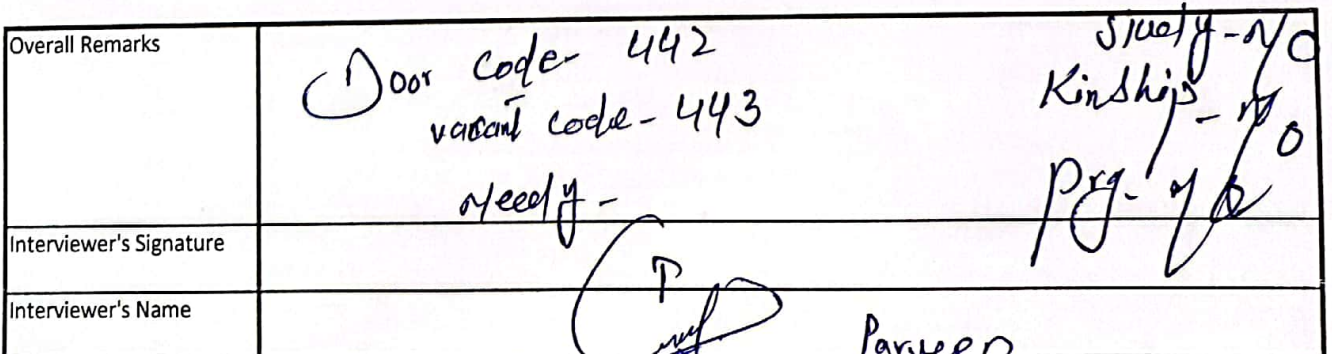 Overall Remarks
Door Code- 442
vacant code- 443
Needy-
Study- No
Kinship- No
Prg- No
Interviewer's Signature
Interviewer's Name
Parveen